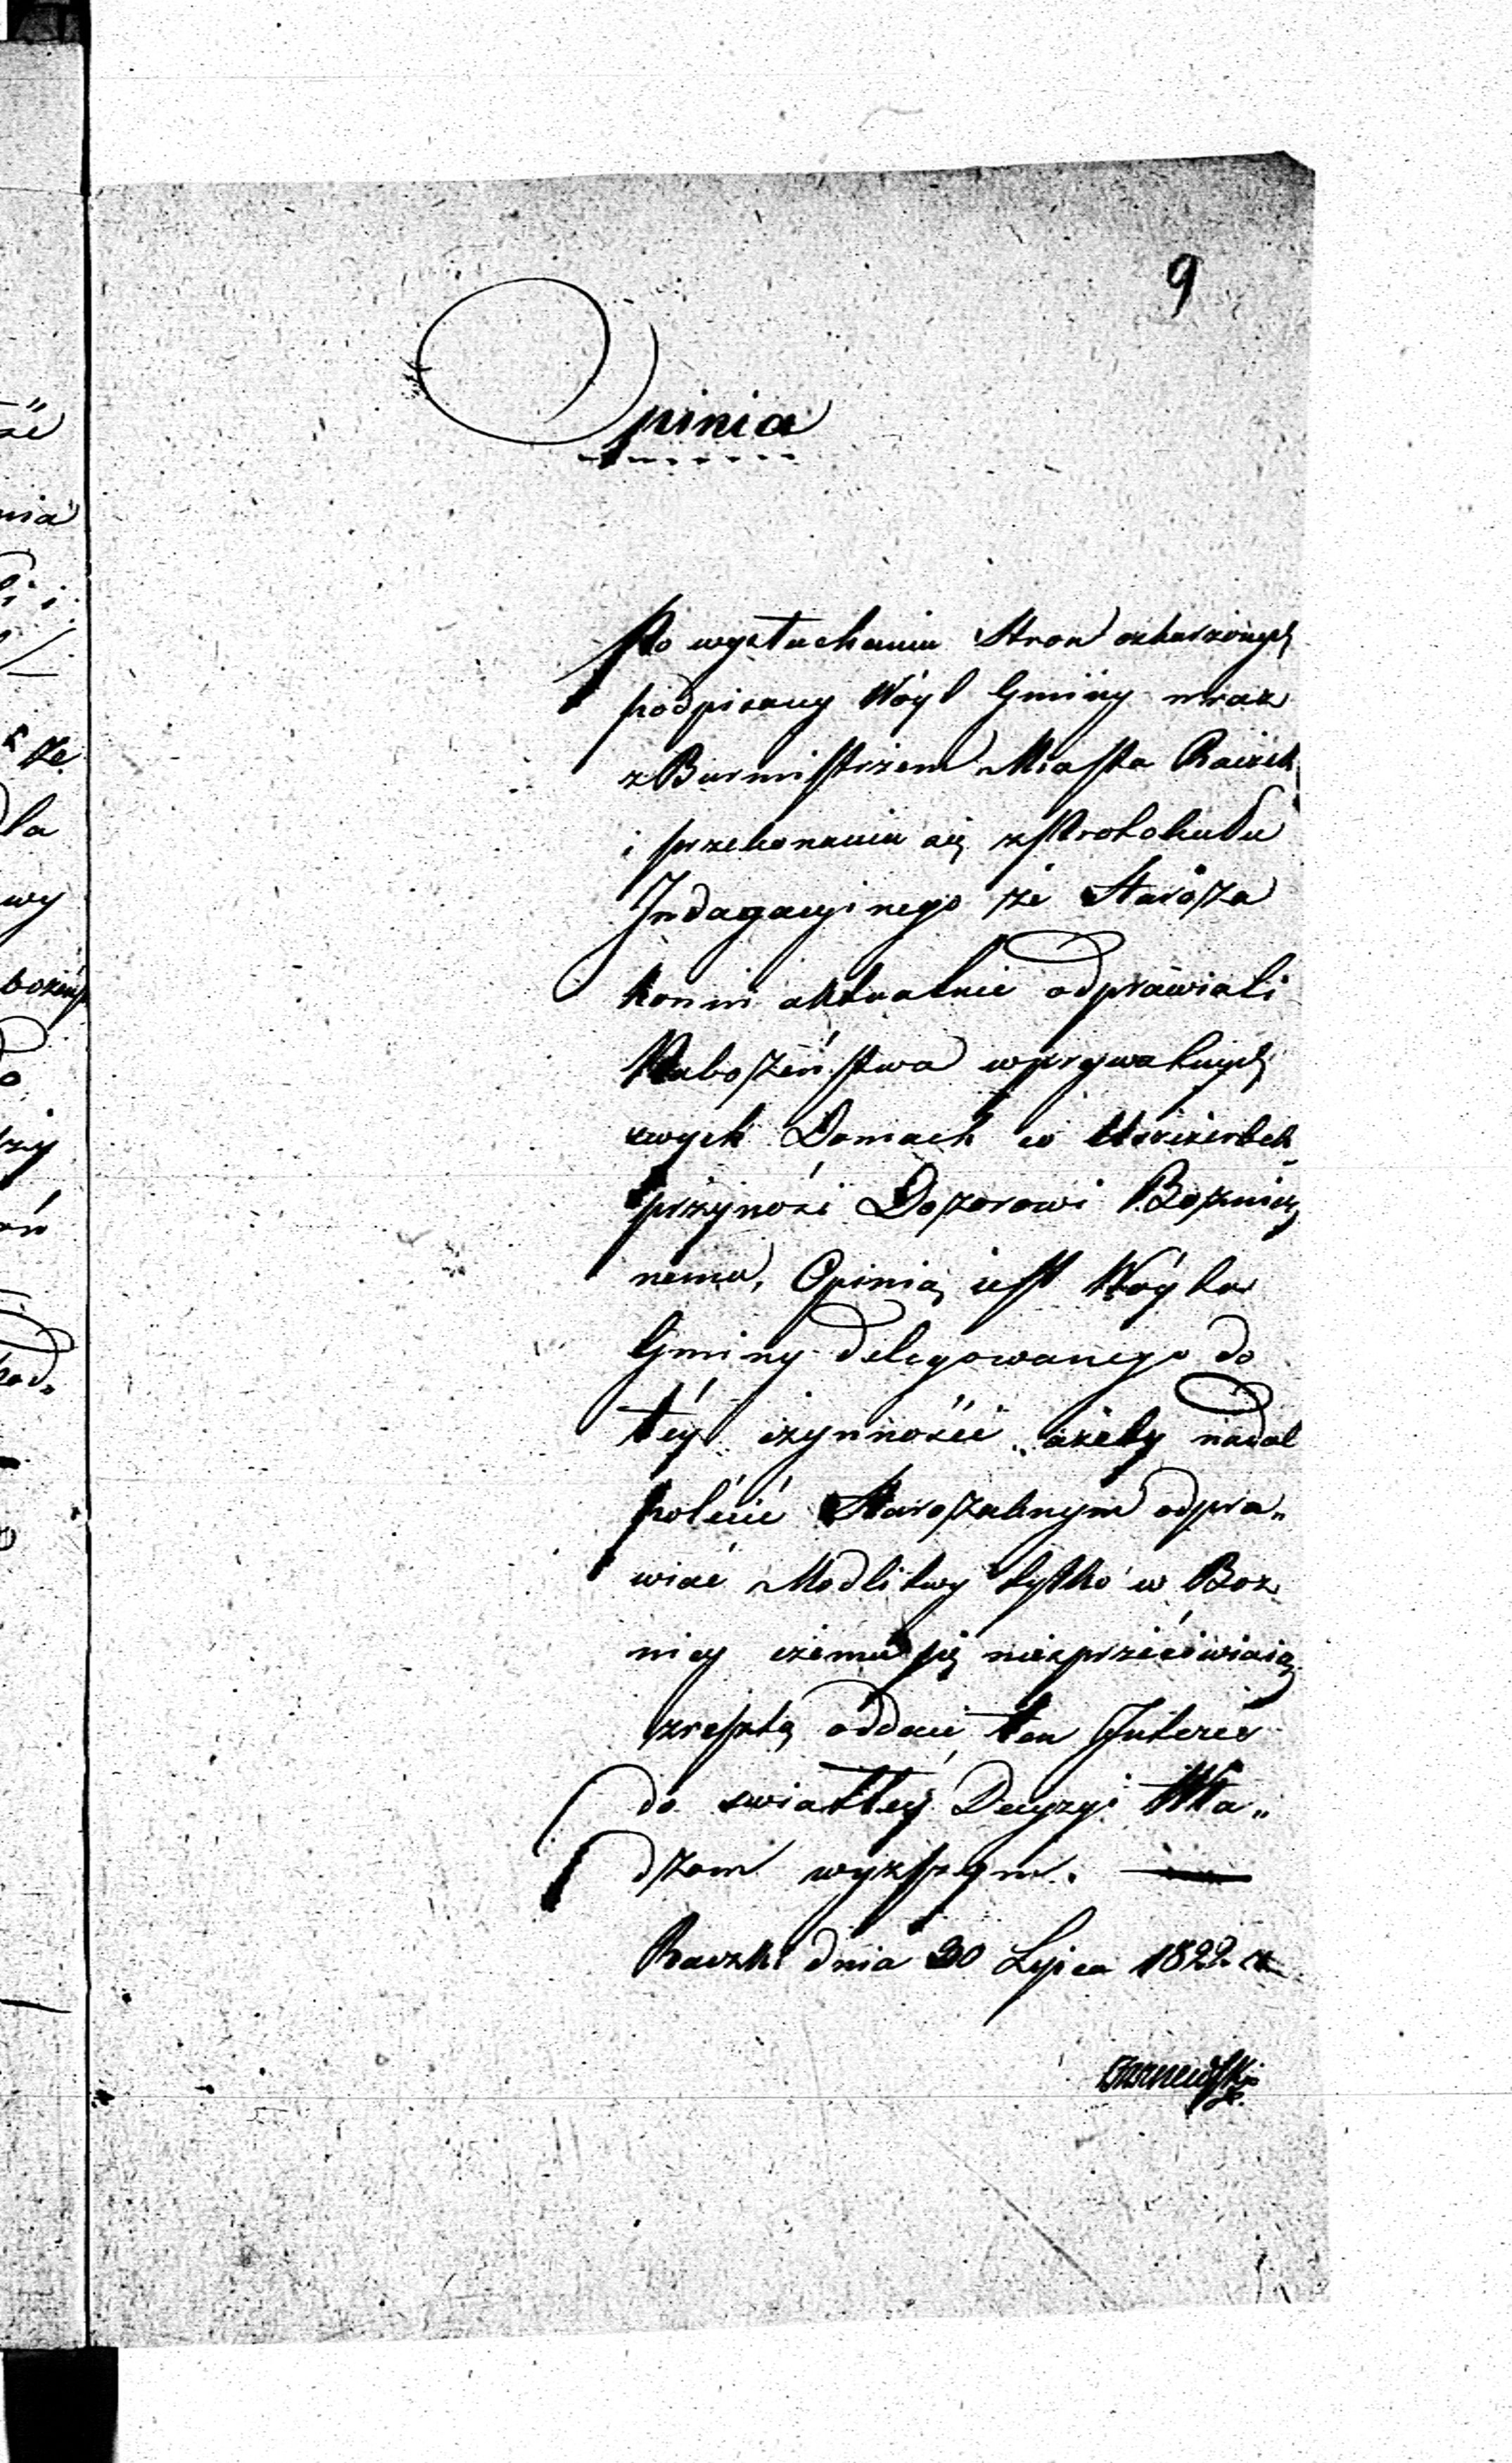 9
Opinia
Po wysłuchaniu Stron oskarzonych
podpisany Wóyt Gminy wraz
z Burmistrzem Miasta Raczek
i przekonaniu się z Protokułu
Indagacyinego że Staroza
konni aktualnie odprawiali
Nabożeństwa w prywatnych
swych Domach w
Dozorowi Bożnicz
nemu, Opinią iest Wóyta
Gminy delegowanego do
téy czynności ażeby nadal
polécić Starozakonnym odpra„
wiać Modlitwy tylko w Boz
nicy czemu się niesprzeciwiaią
zresztą oddaie ten Interes
do swiatłey Decyzyi Wła„
dzom wyzszym.
Raczki dnia 30 Lipca 1822 r